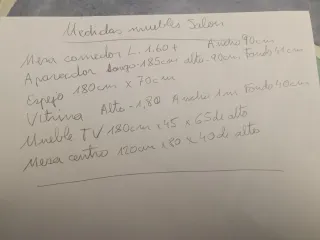 Medidas muebles Salon
Mesa comedor L. 1.60+ Ancho 90cm
Aparador Largo-185cm alto-90cm. Fondo 41cm
Espejo 180cm x 70cm
Vitrina Alto-1,80 Ancho 1m Fondo 40cm
Mueble TV 180cm x 45 x 65 de alto
Mesa centro 120cm x 80 x 40 de alto